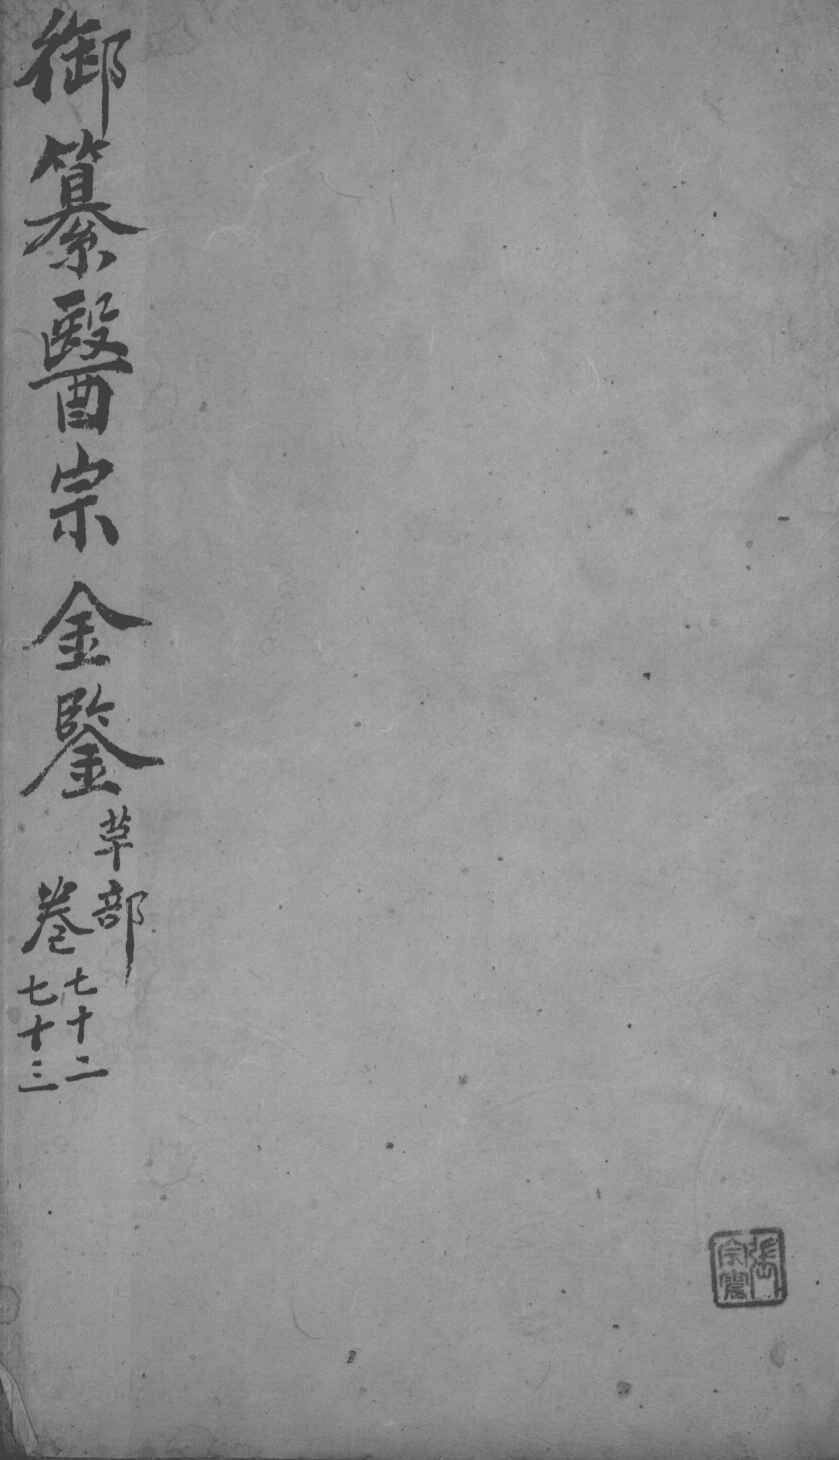 御纂醫宗金鑒
草部
卷
七十二
七十三
張
宗